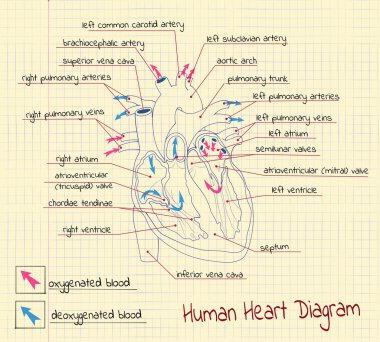 left common carotid artery
brachiocephalic artery
left subclavian artery
superior vena cava
aortic arch
right pulmonary arteries
pulmonary trunk
left pulmonary arteries
right pulmonary veins
left pulmonary veins
left atrium
semilunar valves
right atrium
atrioventricular (mitral) valve
atrioventricular
(tricuspid) valve
left ventricle
chordae tendinae
right ventricle
septum
inferior vena cava
oxygenated blood
deoxygenated blood
Human Heart Diagram